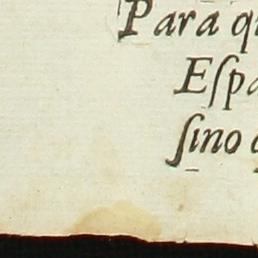 Para qu
Eſpa
ſino